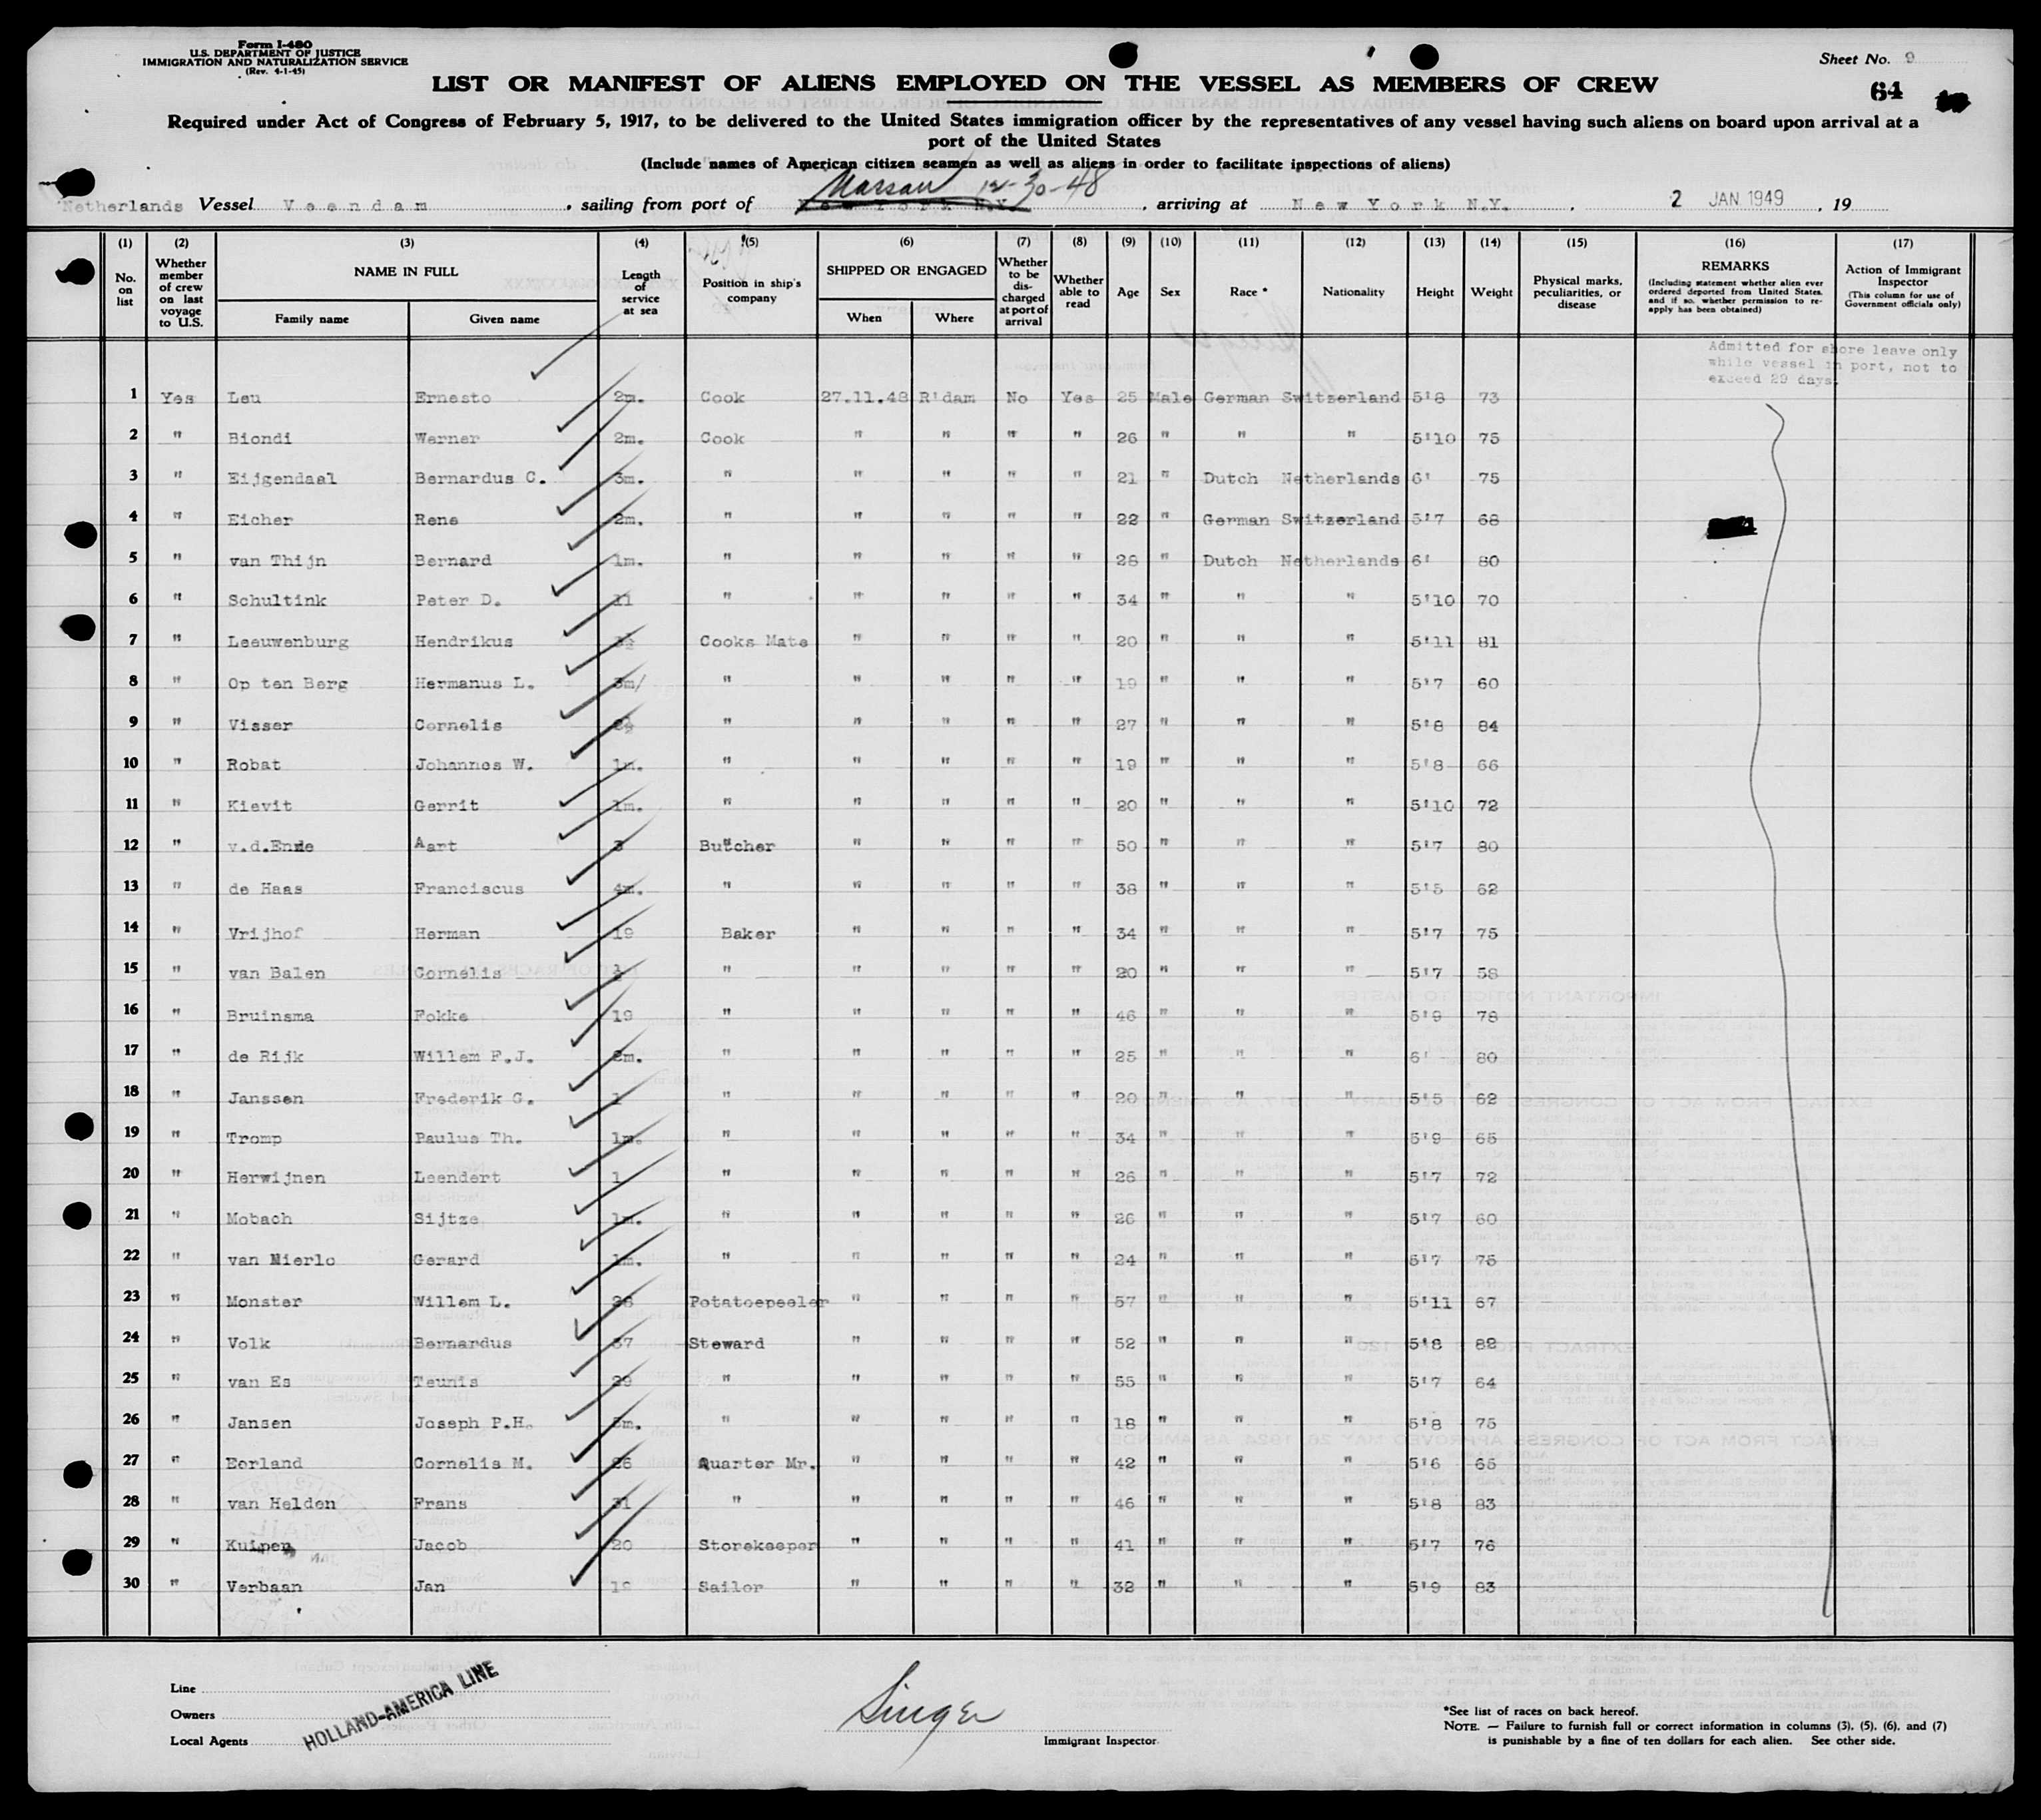 Form I-480
U.S. DEPARTMENT OF JUSTICE
IMMIGRATION AND NATURALIZATION SERVICE
(Rev. 4-1-45)
Sheet No. 9
LIST OR MANIFEST OF ALIENS EMPLOYED ON THE VESSEL AS MEMBERS OF CREW
64
Required under Act of Congress of February 5, 1917, to be delivered to the United States immigration officer by the representatives of any vessel having such aliens on board upon arrival at a
port of the United States
(Include names of American citizen seamen as well as aliens in order to facilitate inspections of aliens)
Nassau 12-30-48
Netherlands Vessel Veendam, sailing from port of New York N.Y., arriving at New York N.Y., 2 JAN 1949, 19
(1) (2) (3) (4) (5) (6) (7) (8) (9) (10) (11) (12) (13) (14) (15) (16) (17)
No. on list
Whether member of crew on last voyage to U.S.
NAME IN FULL
Family name Given name
Length of service at sea
Position in ship's company
SHIPPED OR ENGAGED
When Where
Whether to be discharged at port of arrival
Whether able to read
Age
Sex
Race *
Nationality
Height
Weight
Physical marks, peculiarities, or disease
REMARKS
(Including statement whether alien ever ordered deported from United States, and if so, whether permission to re-apply has been obtained)
Action of Immigrant Inspector
(This column for use of Government officials only)
Admitted for shore leave only
while vessel in port, not to
exceed 29 days.
1 Yes Leu Ernesto 2m. Cook 27.11.48 R'dam No Yes 25 Male German Switzerland 5'8 73
2 " Biondi Werner 2m. Cook " " " " 26 " " " 5'10 75
3 " Eijgendaal Bernardus C. 3m. " " " " " 21 " Dutch Netherlands 6' 75
4 " Eicher Rene 2m. " " " " " 22 " German Switzerland 5'7 68
5 " van Thijn Bernard 1m. " " " " " 28 " Dutch Netherlands 6' 80
6 " Schultink Peter D. 11 " " " " " 34 " " " 5'10 70
7 " Leeuwenburg Hendrikus Cooks Mate " " " " 20 " " " 5'11 81
8 " Op ten Berg Hermanus L. 3m/ " " " " " 19 " " " 5'7 60
9 " Visser Cornelis " " " " " 27 " " " 5'8 84
10 " Robat Johannes W. 1m. " " " " " 19 " " " 5'8 66
11 " Kievit Gerrit 1m. " " " " " 20 " " " 5'10 72
12 " v.d.Ende Aart 3 Butcher " " " " 50 " " " 5'7 80
13 " de Haas Franciscus 4m. " " " " " 38 " " " 5'5 62
14 " Vrijhof Herman 19 Baker " " " " 34 " " " 5'7 75
15 " van Balen Cornelis " " " " " 20 " " " 5'7 58
16 " Bruinsma Fokke 19 " " " " " 46 " " " 5'9 78
17 " de Rijk Willem F.J. " " " " " 25 " " " 6' 80
18 " Janssen Frederik G. 1 " " " " " 20 " " " 5'5 62
19 " Tromp Paulus Th. 1m. " " " " " 34 " " " 5'9 65
20 " Herwijnen Leendert 1 " " " " " 26 " " " 5'7 72
21 " Mobach Sijtze 1m. " " " " " 26 " " " 5'7 60
22 " van Mierlo Gerard 1m. " " " " " 24 " " " 5'7 75
23 " Monster Willem L. Potatoepeeler " " " " 57 " " " 5'11 67
24 " Volk Bernardus 37 Steward " " " " 52 " " " 5'8 82
25 " van Es Teunis 29 " " " " " 55 " " " 5'7 64
26 " Jansen Joseph P.H. " " " " " 18 " " " 5'8 75
27 " Eerland Cornelis M. 26 Quarter Mr. " " " " 42 " " " 5'6 65
28 " van Helden Frans 31 " " " " " 46 " " " 5'8 83
29 " Kuipen Jacob 20 Storekeeper " " " " 41 " " " 5'7 76
30 " Verbaan Jan Sailor " " " " 32 " " " 5'9 83
Line
Owners
Local Agents
HOLLAND-AMERICA LINE
Singer
Immigrant Inspector
*See list of races on back hereof.
NOTE. — Failure to furnish full or correct information in columns (3), (5), (6), and (7)
is punishable by a fine of ten dollars for each alien. See other side.